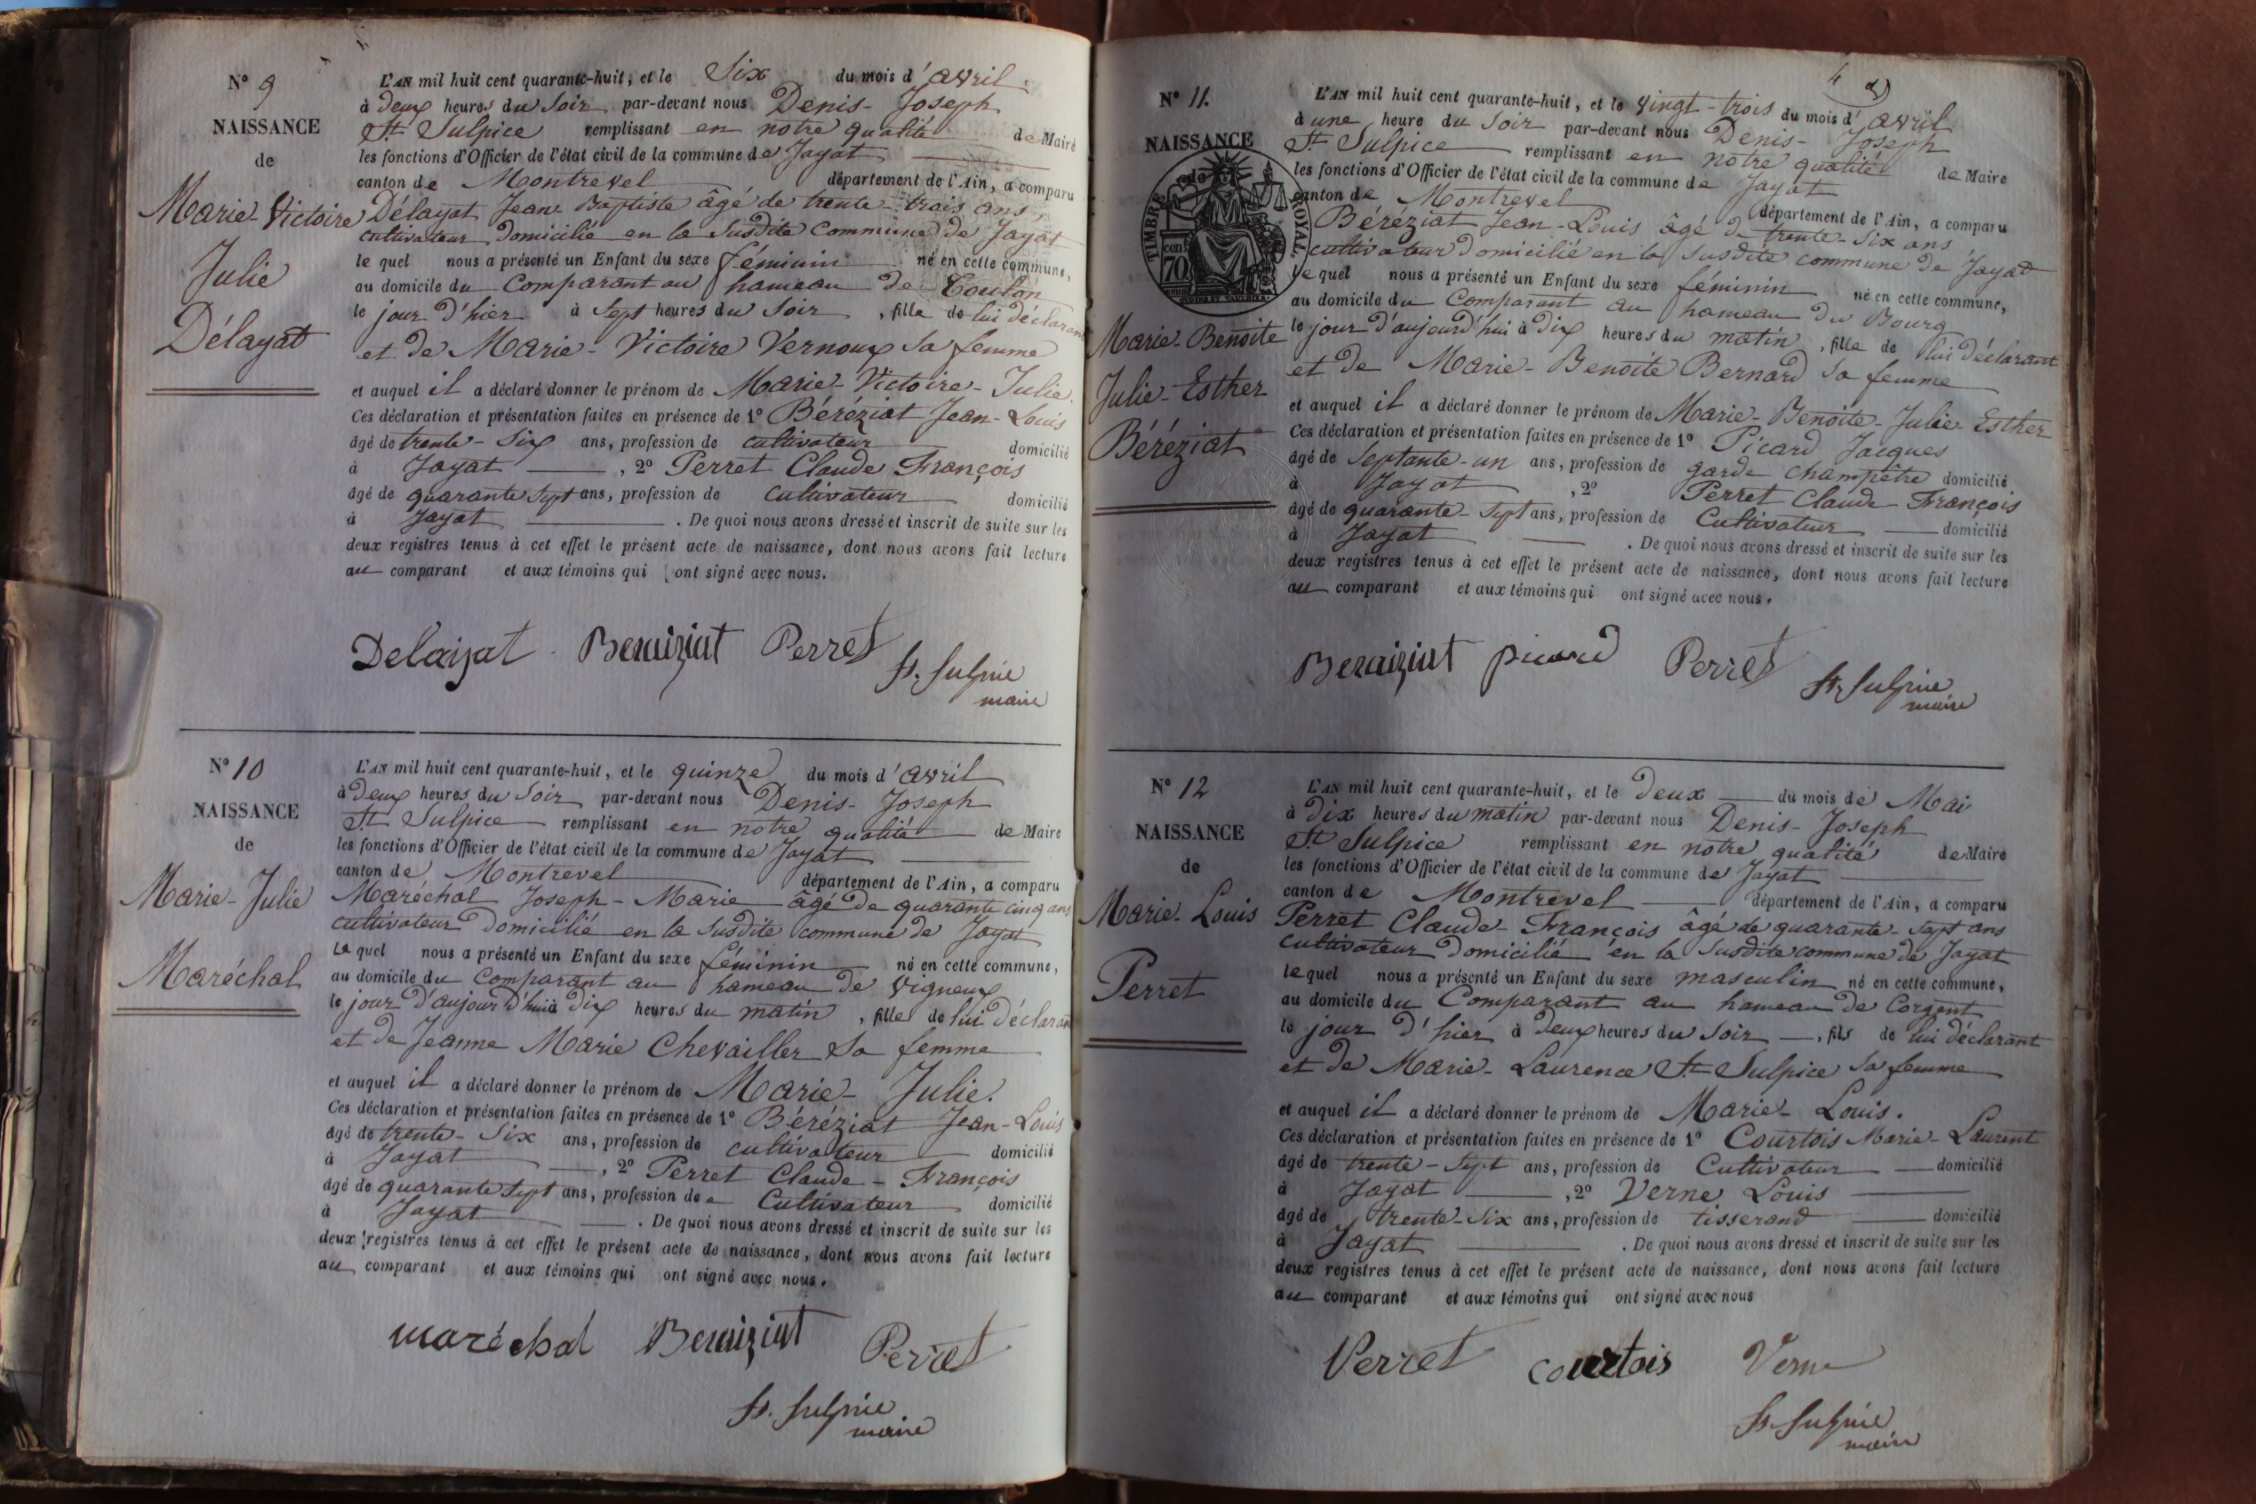 N° 9
NAISSANCE
de
Marie-Victoire
Julie
Délayat
L'AN mil huit cent quarante-huit, et le Six du mois d'avril
à deux heures du Soir par-devant nous Denis-Joseph
St Sulpice remplissant en notre qualité de Maire
les fonctions d'Officier de l'état civil de la commune de Jayat
canton de Montrevel département de l'Ain, a comparu
Délayat Jean-Baptiste âgé de trente-trois ans
cultivateur domicilié en la susdite commune de Jayat
le quel nous a présenté un Enfant du sexe féminin né en cette commune,
au domicile du Comparant au hameau de Toulon
le jour d'hier à Sept heures du Soir, fille de lui déclarant
et de Marie-Victoire Vernoux sa femme
et auquel il a déclaré donner le prénom de Marie-Victoire-Julie.
Ces déclaration et présentation faites en présence de 1° Béréziat Jean-Louis
âgé de trente-Six ans, profession de cultivateur domicilié
à Jayat, 2° Perret Claude François
âgé de quarante sept ans, profession de cultivateur domicilié
à Jayat. De quoi nous avons dressé et inscrit de suite sur les
deux registres tenus à cet effet le présent acte de naissance, dont nous avons fait lecture
au comparant et aux témoins qui ont signé avec nous.
Delaiyat Beraiziat Perret
St. Sulpice
maire
N° 10
NAISSANCE
de
Marie-Julie
Maréchal
L'AN mil huit cent quarante-huit, et le quinze du mois d'avril
à deux heures du Soir par-devant nous Denis-Joseph
St Sulpice remplissant en notre qualité de Maire
les fonctions d'Officier de l'état civil de la commune de Jayat
canton de Montrevel département de l'Ain, a comparu
Maréchal Joseph-Marie âgé de quarante cinq ans
cultivateur domicilié en la susdite commune de Jayat
le quel nous a présenté un Enfant du sexe féminin né en cette commune,
au domicile du comparant au hameau de Vigneux
le jour d'aujourd'hui à dix heures du matin, fille de lui déclarant
et de Jeanne Marie Chevailler sa femme
et auquel il a déclaré donner le prénom de Marie-Julie.
Ces déclaration et présentation faites en présence de 1° Béréziat Jean-Louis
âgé de trente-Six ans, profession de cultivateur domicilié
à Jayat, 2° Perret Claude-François
âgé de quarante sept ans, profession de Cultivateur domicilié
à Jayat. De quoi nous avons dressé et inscrit de suite sur les
deux registres tenus à cet effet le présent acte de naissance, dont nous avons fait lecture
au comparant et aux témoins qui ont signé avec nous.
maréchal Beraiziat Perret
St. Sulpice
maire
4
N° 11.
NAISSANCE
TIMBRE ROYAL
70
Marie-Benoite
Julie-Esther
Béréziat
L'AN mil huit cent quarante-huit, et le vingt-trois du mois d'avril
à une heure du Soir par-devant nous Denis-Joseph
St Sulpice remplissant en notre qualité de Maire
les fonctions d'Officier de l'état civil de la commune de Jayat
canton de Montrevel département de l'Ain, a comparu
Béréziat Jean-Louis âgé de trente-Six ans
cultivateur domicilié en la susdite commune de Jayat
le quel nous a présenté un Enfant du sexe féminin né en cette commune,
au domicile du Comparant au hameau du Bourg
le jour d'aujourd'hui à dix heures du matin, fille de lui déclarant
et de Marie-Benoite Bernard sa femme
et auquel il a déclaré donner le prénom de Marie-Benoite-Julie Esther
Ces déclaration et présentation faites en présence de 1° Picard Jacques
âgé de Septante-un ans, profession de garde champêtre domicilié
à Jayat, 2° Perret Claude-François
âgé de quarante-Sept ans, profession de Cultivateur domicilié
à Jayat. De quoi nous avons dressé et inscrit de suite sur les
deux registres tenus à cet effet le présent acte de naissance, dont nous avons fait lecture
au comparant et aux témoins qui ont signé avec nous.
Beraiziat picard Perret
St. Sulpice
maire
N° 12
NAISSANCE
de
Marie-Louis
Perret
L'AN mil huit cent quarante-huit, et le deux du mois de Mai
à dix heures du matin par-devant nous Denis-Joseph
St Sulpice remplissant en notre qualité de Maire
les fonctions d'Officier de l'état civil de la commune de Jayat
canton de Montrevel département de l'Ain, a comparu
Perret Claude-François âgé de quarante-sept ans
cultivateur domicilié en la susdite commune de Jayat
le quel nous a présenté un Enfant du sexe masculin né en cette commune,
au domicile du Comparant au hameau de Corgent
le jour d'hier à deux heures du soir, fils de lui déclarant
et de Marie-Laurence St Sulpice sa femme
et auquel il a déclaré donner le prénom de Marie-Louis.
Ces déclaration et présentation faites en présence de 1° Courtois Marie-Laurent
âgé de trente-Sept ans, profession de Cultivateur domicilié
à Jayat, 2° Verne Louis
âgé de trente-Six ans, profession de tisserand domicilié
à Jayat. De quoi nous avons dressé et inscrit de suite sur les
deux registres tenus à cet effet le présent acte de naissance, dont nous avons fait lecture
au comparant et aux témoins qui ont signé avec nous
Perret courtois Verne
St. Sulpice
maire